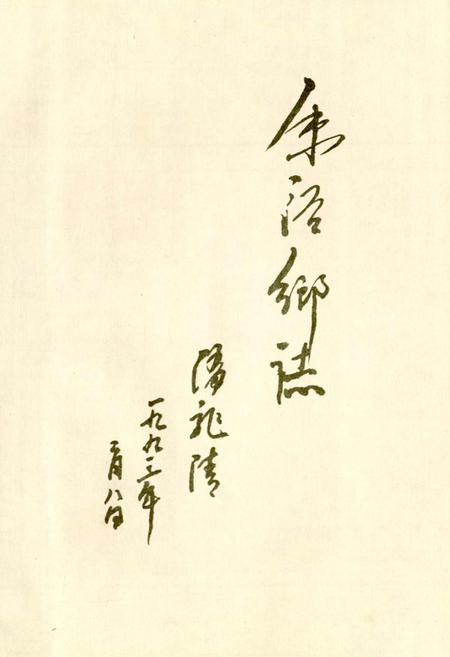 余 鄉誌
潘龍清
一九九三年
二月八日